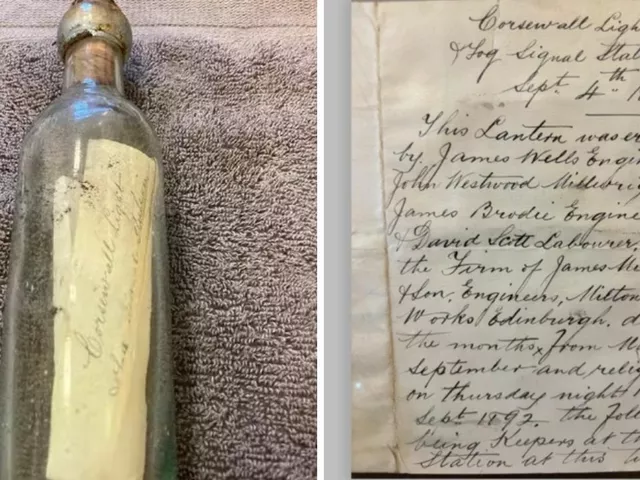 Corsewall Light
Corsewall Ligh
& Fog Signal Stat
Sept. 4th 1
This Lantern was er
by James Wells Engin
John Westwood Millwri
James Brodie Engine
& David Scott Labourer,
the Firm of James Mi
& Son, Engineers, Milton
Works Edinburgh. d
the months, from M
September and relig
on thursday night 1
Sept 1892. the foll
being Keepers at th
Station at this ti